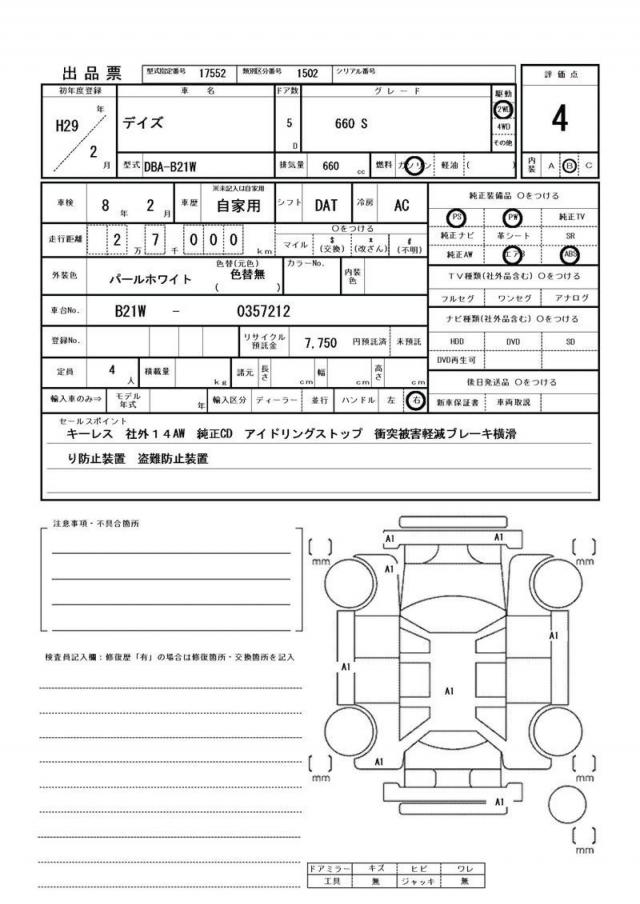 出品票 型式指定番号 17552 類別区分番号 1502 シリアル番号
評価点
初年度登録 車名 ドア数 グレード 駆動
H29 年 2 月 デイズ 5 D 660 S 2WD 4WD その他
4
型式 DBA-B21W 排気量 660 cc 燃料 ガソリン 軽油 ( )
内装 A B C
車検 8 年 2 月 車歴 ※未記入は自家用 自家用 シフト DAT 冷房 AC
純正装備品 Oをつける
PS PW 純正TV
走行距離 2 万 7 千 0 0 0 km Oをつける マイル $ (交換) * (改ざん) # (不明)
純正ナビ 革シート SR
純正AW エアB ABS
外装色 パールホワイト 色替(元色) 色替無 ( ) カラーNo. 内装色
TV種類(社外品含む) Oをつける
フルセグ ワンセグ アナログ
車台No. B21W - 0357212
ナビ種類(社外品含む) Oをつける
登録No. リサイクル預託金 7,750 円預託済 未預託
HDD DVD SD
DVD再生可
定員 4 人 積載量 kg 諸元 長さ cm 幅 cm 高さ cm
後日発送品 Oをつける
輸入車のみ⇒ モデル年式 年 輸入区分 ディーラー 並行 ハンドル 左 右
新車保証書 車両取説
セールスポイント
キーレス 社外14AW 純正CD アイドリングストップ 衝突被害軽減ブレーキ横滑
り防止装置 盗難防止装置
注意事項・不具合箇所
A1 A1
mm mm
A1
A1
検査員記入欄：修復歴「有」の場合は修復箇所・交換箇所を記入
A1
A1
A1
mm mm
A1
mm
ドアミラー キズ ヒビ ワレ
工具 無 ジャッキ 無